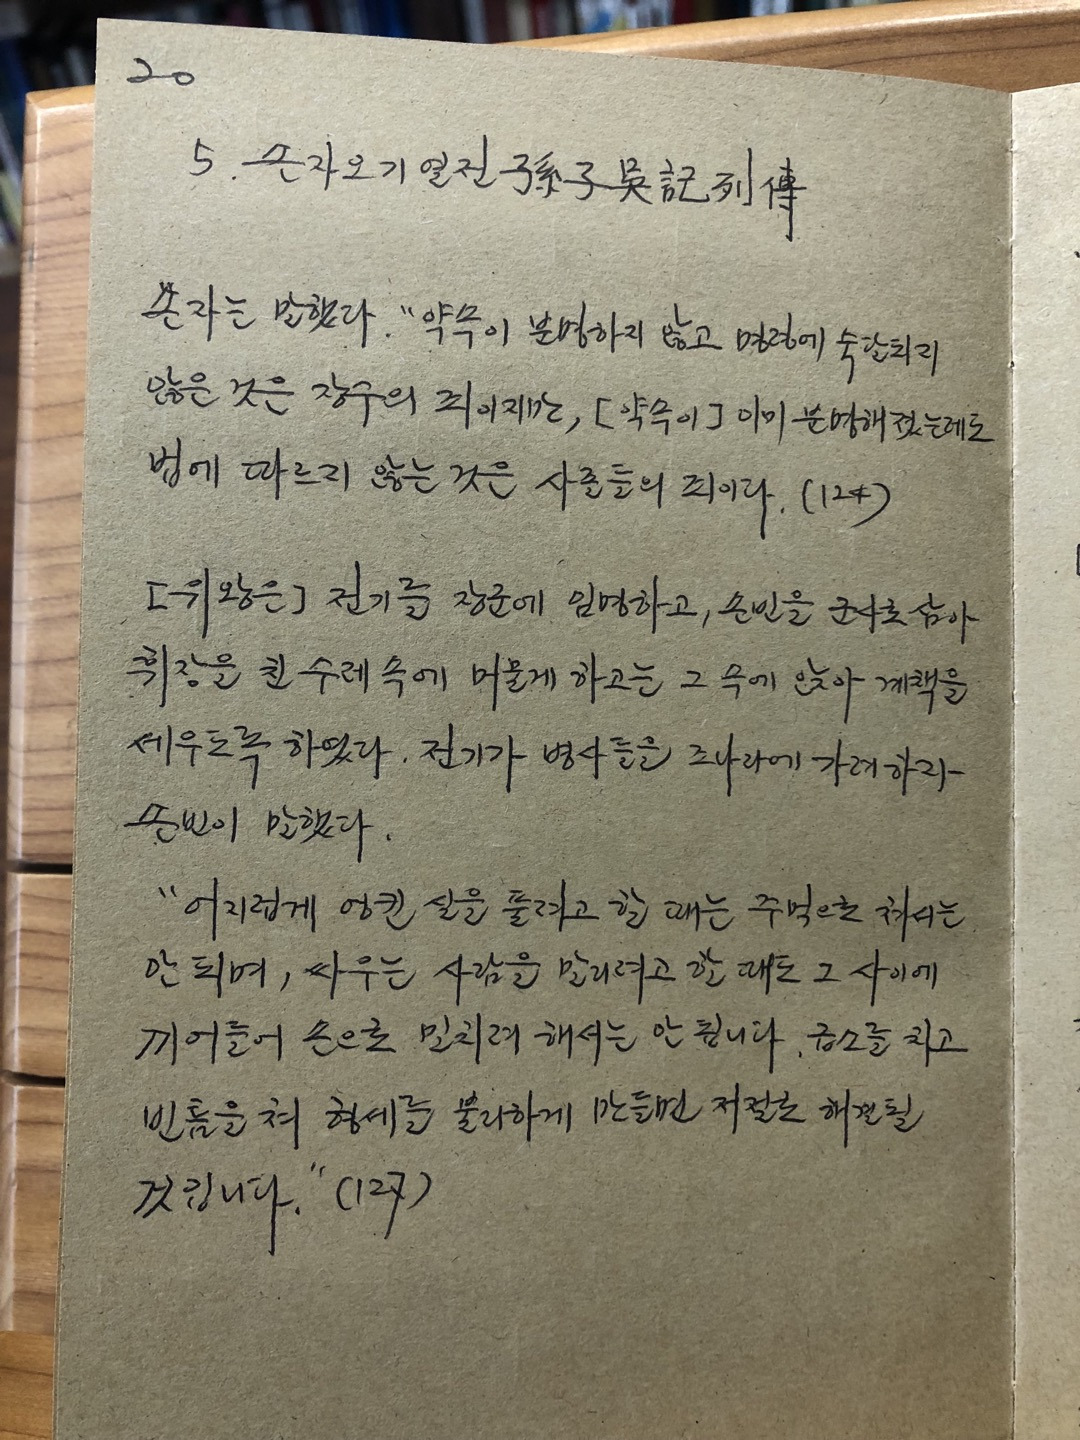 20
5. 손자오기열전 孫子吳記列傳
손자는 말했다. "약속이 분명하지 않고 명령에 숙달되지
않은 것은 장수의 죄이지만, [약속이] 이미 분명해졌는데도
법에 따르지 않는 것은 사졸들의 죄이다. (124)
[위왕은] 전기를 장군에 임명하고, 손빈을 군사로 삼아
휘장을 친 수레 속에 머물게 하고는 그 속에 앉아 계책을
세우도록 하였다. 전기가 병사들을 조나라에 가려하자
손빈이 말했다.
"어지럽게 엉킨 실을 풀려고 할 때는 주먹으로 쳐서는
안 되며, 싸우는 사람을 말리려고 할 때도 그 사이에
끼어들어 손으로 밀치려 해서는 안 됩니다. 급소를 치고
빈틈을 쳐 형세를 불리하게 만들면 저절로 해결될
것입니다." (127)